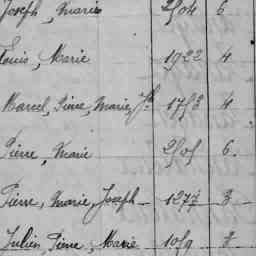 Joseph, Marie 2504 6
Louis, Marie 1922 4
Marcel, Pierre, Marie, Jh 1753 4
Pierre, Marie 2505 6.
Pierre, Marie, Joseph 1277 3
Julien, Pierre, Marie 1059 3